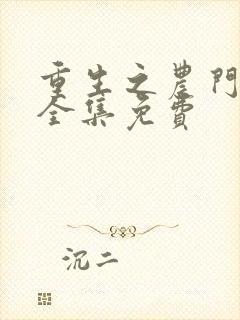 重生之農門
全集免費
沉二